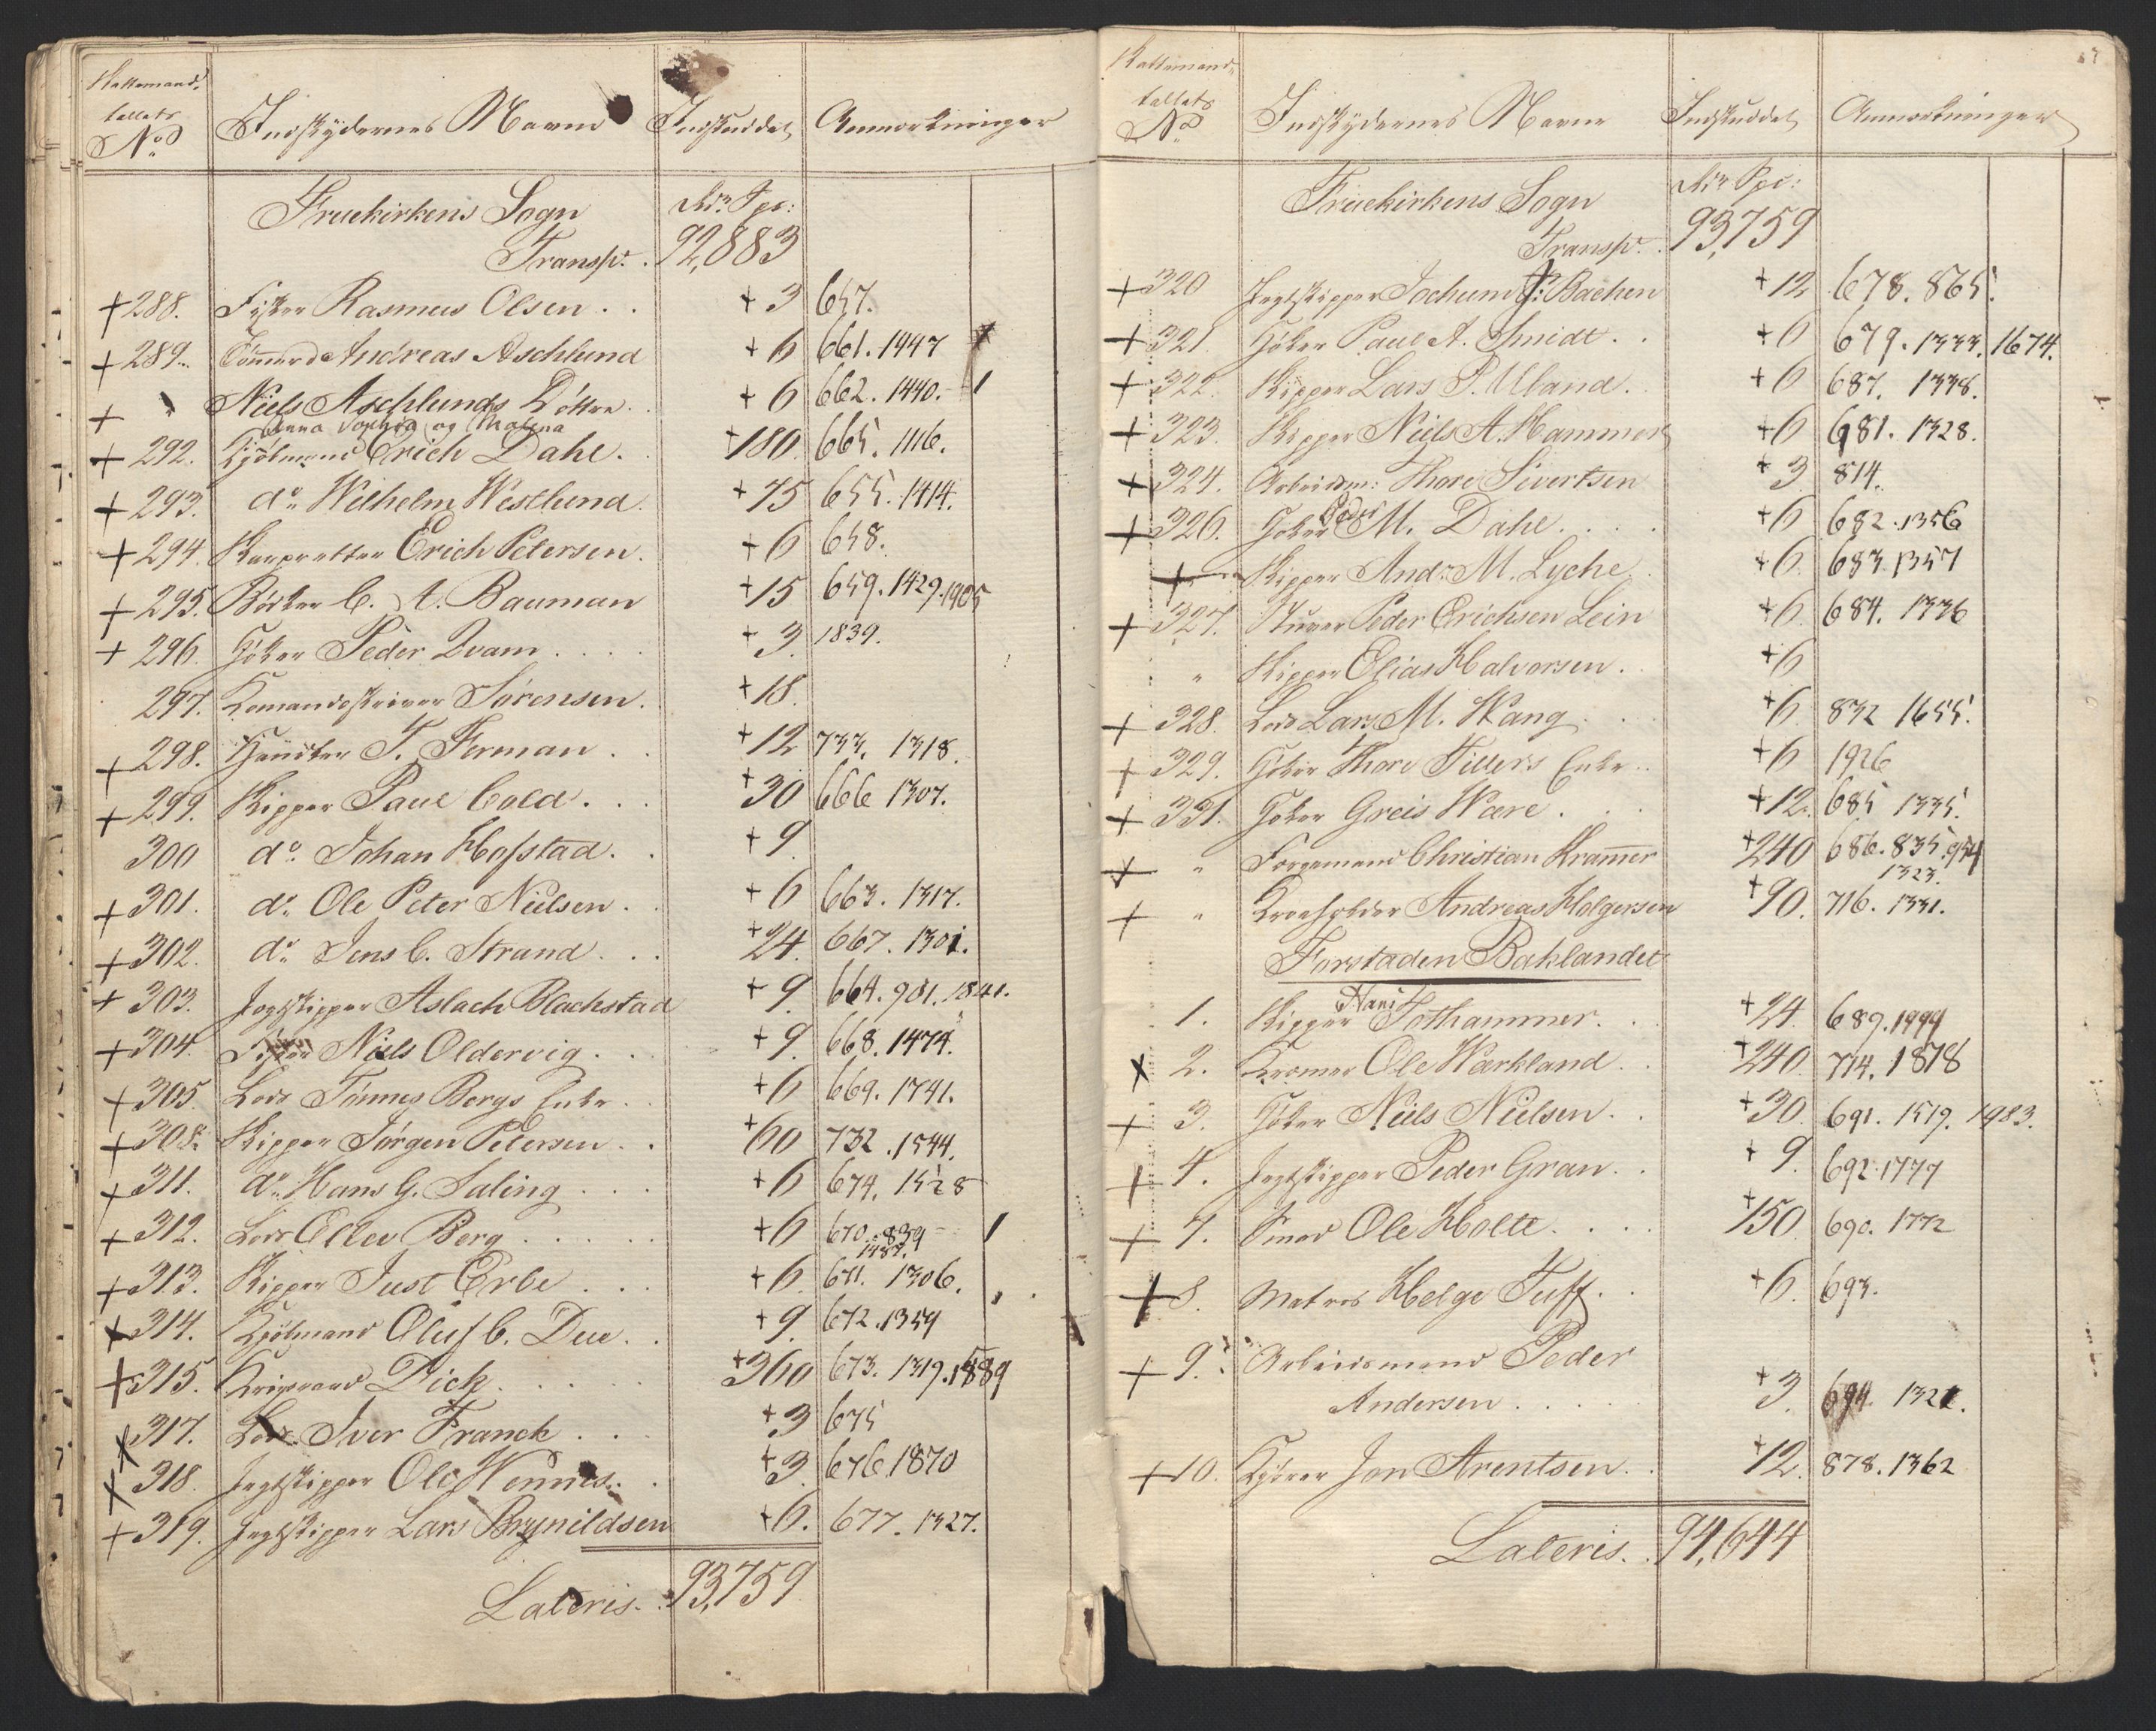 Skattemand-
tallets
No
Indskydernes Navne
Indskuddet
Anmærkninger
Fruekirkens Sogn
Rdr. Spe:
Transpt. . 92,883
+ 288. Fisker Rasmus Olsen . . + 3 657.
+ 289. Tømmermd Andreas Aschlund + 6 661. 1447
+ " Niels Aschlunds Døttre . . + 6 662. 1440.
Anna Sophia og Malena
+ 292. Kjøbmand Erich Dahl . +180 665. 1116.
+ 293. do. Wilhelm Westlund . + 75 655. 1414.
+ 294. Skarpretter Erich Petersen . + 6 658.
+ 295. Bødker C. A. Bauman + 15 659. 1429. 1905
+ 296. Høker Peder Qvam . . . . + 3. 1839.
297. Komandeskriver Sørensen . + 18.
+ 298. T. Forman . . + 12 733. 1318.
+ 299. Skipper Paul Cold . . . + 30 666 1307.
300 do. Johan Hofstad . . + 9.
+ 301. do. Ole Peter Nielsen . . + 6 663. 1317.
+ 302. do. Jens C. Strand . . . + 24. 667. 1301.
+ 303. Jegtskipper Aslach Blachstad + 9. 664. 901. 1841.
+ 304. Niels Oldervig . . . + 9. 668. 1474.
+ 305. Lods Tønnes Bergs Enke . . + 6 669. 1741.
+ 308. Skipper Jørgen Petersen . . + 60 732. 1544.
+ 311. do. Hans G. Saling . . . + 6 674. 1528
+ 312. Lods Ellev Berg . . . . . + 6 670. 839
1487.
+ 313. Skipper Just Erbe . . . + 6. 671. 1306.
+ 314. Kjøbmand Oluf C. Due . . + 9. 672. 1359
+ 315. Krigsraad Dick . . . . . + 360 673. 1319. 1889
+ 317. Lods Iver Franck . . . + 3 675
+ 318. Jegtskipper Ole Wennes . . + 3. 676. 1870
+ 319. Jegtskipper Lars Brynildsen + 6. 677. 1327.
Lateris. . 93,759.
Skattemand-
tallets
No
Indskydernes Navne
Indskuddet
Anmærkninger
Fruekirkens Sogn
Rdr. Spe:
Transpt. . 93,759
+ 320 Jegtskipper Jochum J: Bachen + 12 678. 865.
+ 321. Høker Paul A. Smidt . . + 6 679. 1333. 1674.
+ 322. Skipper Lars P. Uland . . + 6 687. 1338.
+ 323. Skipper Niels A. Hammer + 6 681. 1328.
+ 324. Arbeidsm: Thore Sivertsen + 3 814.
Peder
+ 326. Høker M. Dahl . . . . + 6 682. 1356
+ " Skipper Andr. M. Lyche . + 6. 683. 1357
+ 327. Stuver Peder Erichsen Lein + 6. 684. 1336
" Skipper Elias Halvorsen . . + 6
+ 328. Lods Lars M. Wang . . . + 6. 832 1655.
+ 329. Høker Thore Tillers Enke . . + 6 1926
+ 331. Høker Greis Wære . . . + 12. 685 1335.
+ " Forgemand Christian Kramer + 240 686. 835. 954
1323.
+ " Kroeholder Andreas Holgersen + 90. 716. 1331.
Forstaden Baklandet
Hans
1. Skipper Tothammer . . + 24. 689. 1999
+ 2. Kræmer Ole Wærkland . . + 240. 714. 1878
+ 3. Høker Niels Nielsen . . + 30. 691. 1519. 1983.
+ 4. Jegtskipper Peder Gran . . + 9. 692. 1777
+ 7. Smed Ole Holte . . . . + 150. 690. 1772
+ 8. Matros Helge Tuff . . + 6. 693.
+ 9. Arbeidsmand Peder
Andersen . . . . . + 3. 694. 1321.
+ 10. Kjører Jon Arentsen . . + 12. 878. 1362
Lateris. . 94,644